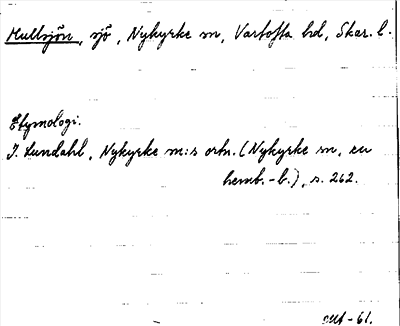 Mullsjön, sjö, Nykyrke sn, Vartofta hd, Skar. l.
Etymologi.
I. Lundahl, Nykyrke sn:s ortn. (Nykyrke sn, en
hemb.-b.), s. 262.
-61.